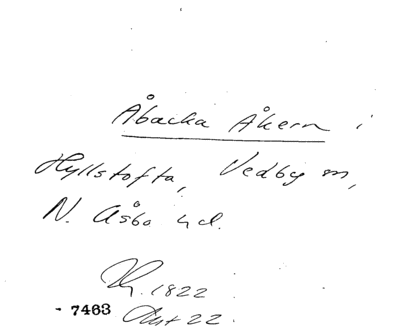 Åbacka Åkern i
Hyllstofta, Vedby sn,
N. Åsbo hd.
1822
- 7463 Akt 22.